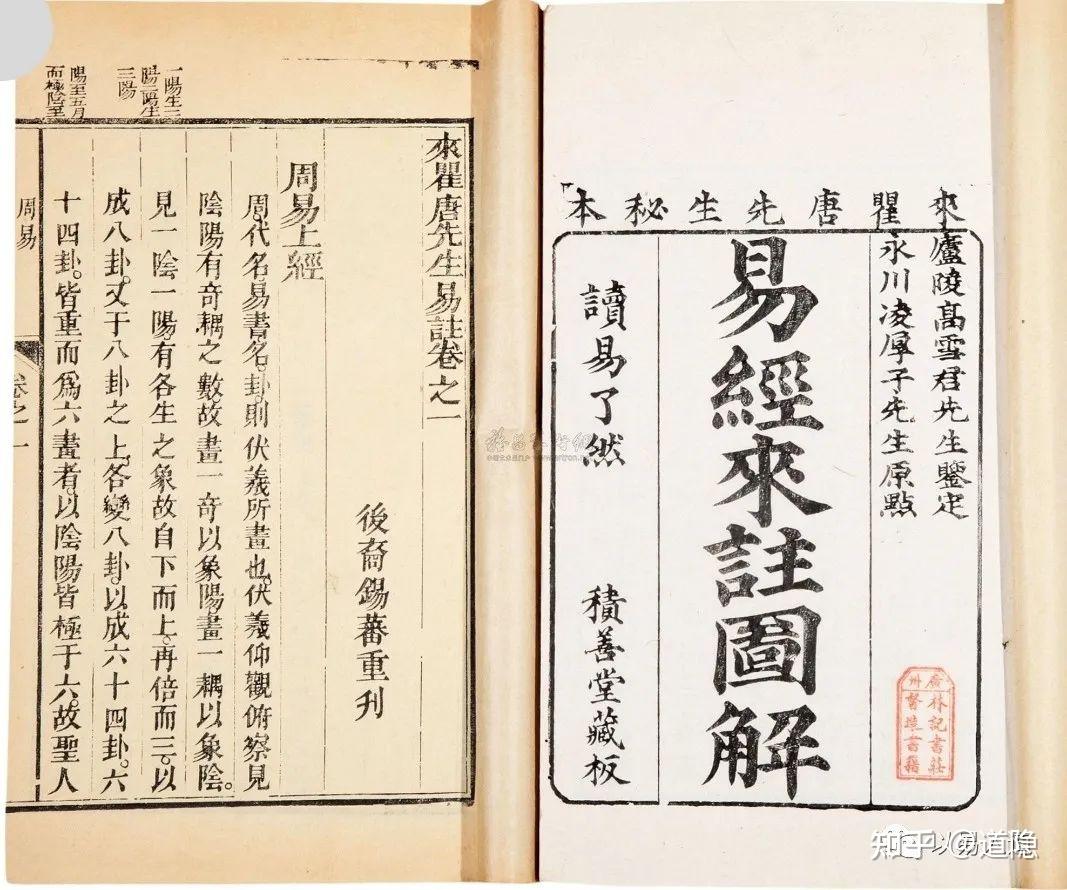 來瞿唐先生秘本
廬陵高雪君先生鑒定
永川凌厚子先生原點
易經來註圖解
讀易了然
積善堂藏板
廣林記書莊
州督造書籍
來瞿唐先生易註卷之一
後裔錫蕃重刊
周易上經
周代名易書名卦則伏羲所畫也伏羲仰觀俯察見
陰陽有奇耦之數故畫一奇以象陽畫一耦以象陰。
見一陰一陽有各生之象故自下而上。再倍而三。以
成八卦。又于八卦之上。各變八卦。以成六十四卦。六
十四卦。皆重而爲六畫者。以陰陽皆極于六。故聖人
周易
卷之一
一陽生二
陽二陽生
三陽
陽至五月
而極陰至
知乎 @易道隐